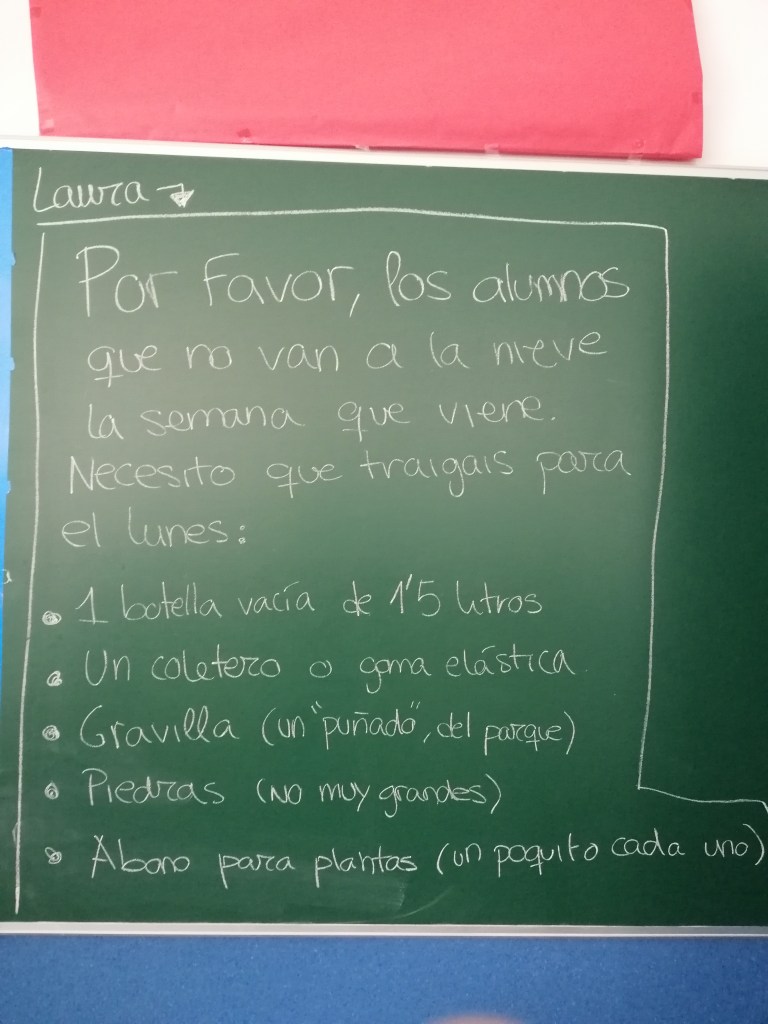 Laura →
Por Favor, los alumnos
que no van a la nieve
la semana que viene.
Necesito que traigais para
el lunes:
• 1 botella vacía de 1'5 litros
• Un coletero o goma elástica.
• Gravilla (un "puñado", del parque)
• Piedras (No muy grandes)
• Abono para plantas (un poquito cada uno)